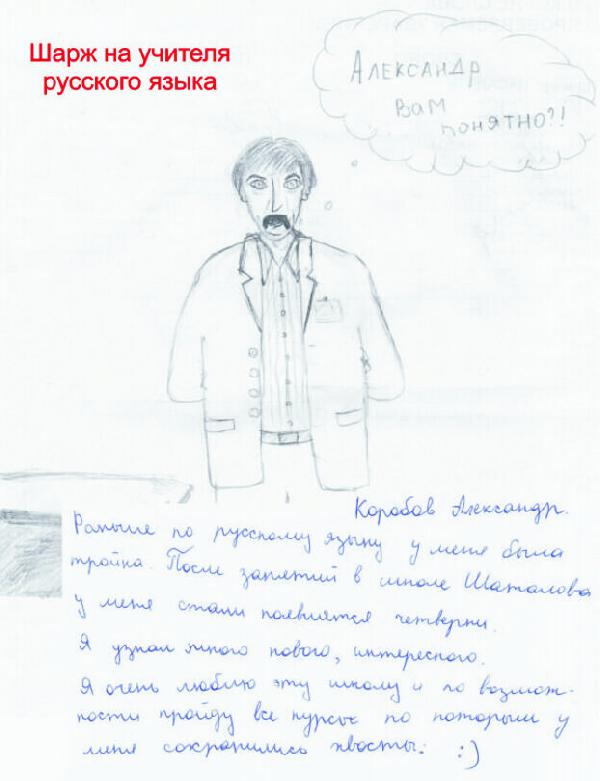 Шарж на учителя
русского языка
АЛЕКСАНДР
ВАМ
ПОНЯТНО?!
Коробов Александр.
Раньше по русскому языку у меня была
тройка. После занятий в школе Шаталова
у меня стали появлятся четверки.
Я узнал много нового, интересного.
Я очень люблю эту школу и по возмож-
ности пройду все курсы по которым у
меня сохранились хвосты. :)